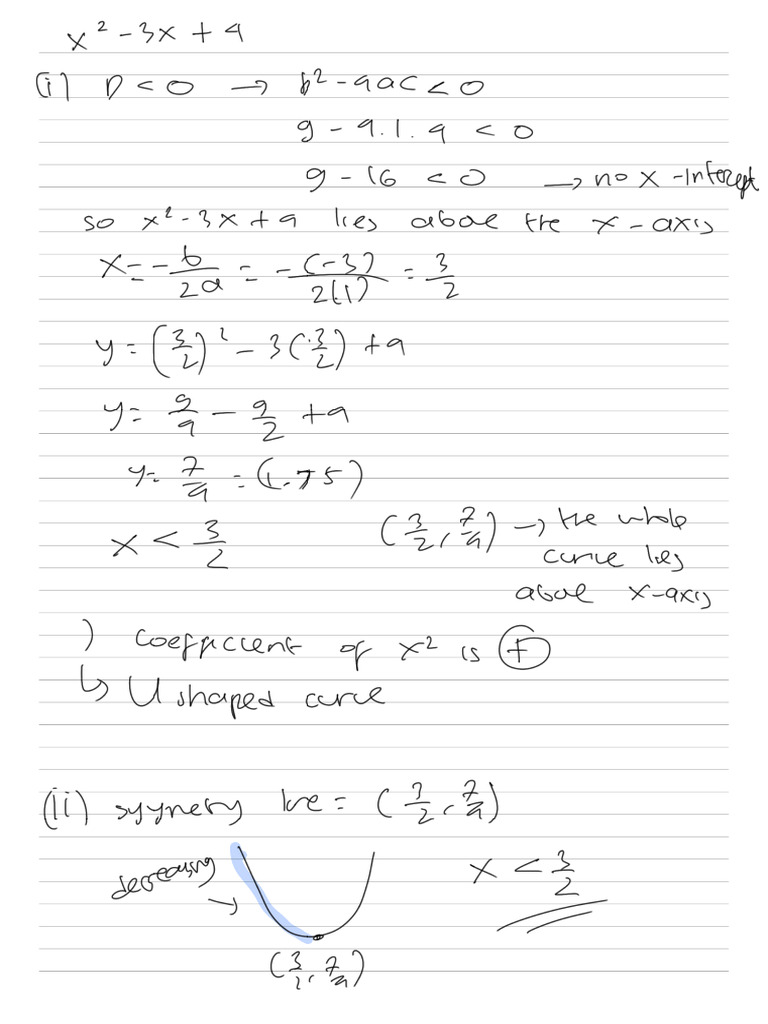 x² - 3x + 4
(i) D < 0 → b² - 4ac < 0
9 - 4.1.4 < 0
9 - 16 < 0 → no x-intercept
so x² - 3x + 4 lies above the x-axis
x = -b/2a = -(-3)/2(1) = 3/2
y = (3/2)² - 3(3/2) + 4
y = 9/4 - 9/2 + 4
y = 7/4 = (1.75)
x < 3/2 (3/2, 7/4) → the whole
curve lies
above x-axis
) coefficient of x² is (+)
↳ U shaped curve
(ii) syynery line = (3/2, 7/4)
decreasing → x < 3/2
(3/2, 7/4)